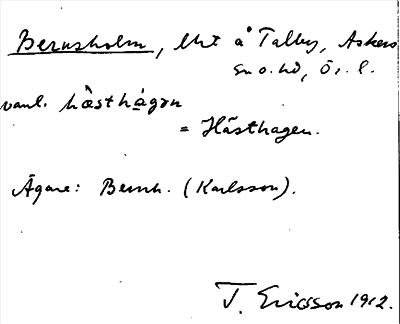 Bernsholm, lht å Talby, Askers
sn o. hd, Ör. l.
vanl. hàsthágɐn
= Hästhagen.
Ägare: Bernh. (Karlsson).
T. Ericsson 1912.